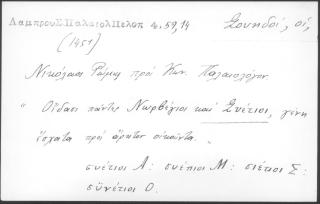 ΛαμπρουΣΠαλαιολΠελοπ 4.59,14
Σουηδοί, οἱ,
(1451)
Νικόλαος πρὸς Κων. Παλαιολόγον
" Οἴδασι πάντες Νωρβέγιοι καὶ Σνέτιοι, γένη
ἔσχατα πρὸς ἄρκτον οἰκοῦντα. "
συέτιοι Α: συέπιοι Μ: σιέτιοι Σ:
σϋνέτιοι Ο.